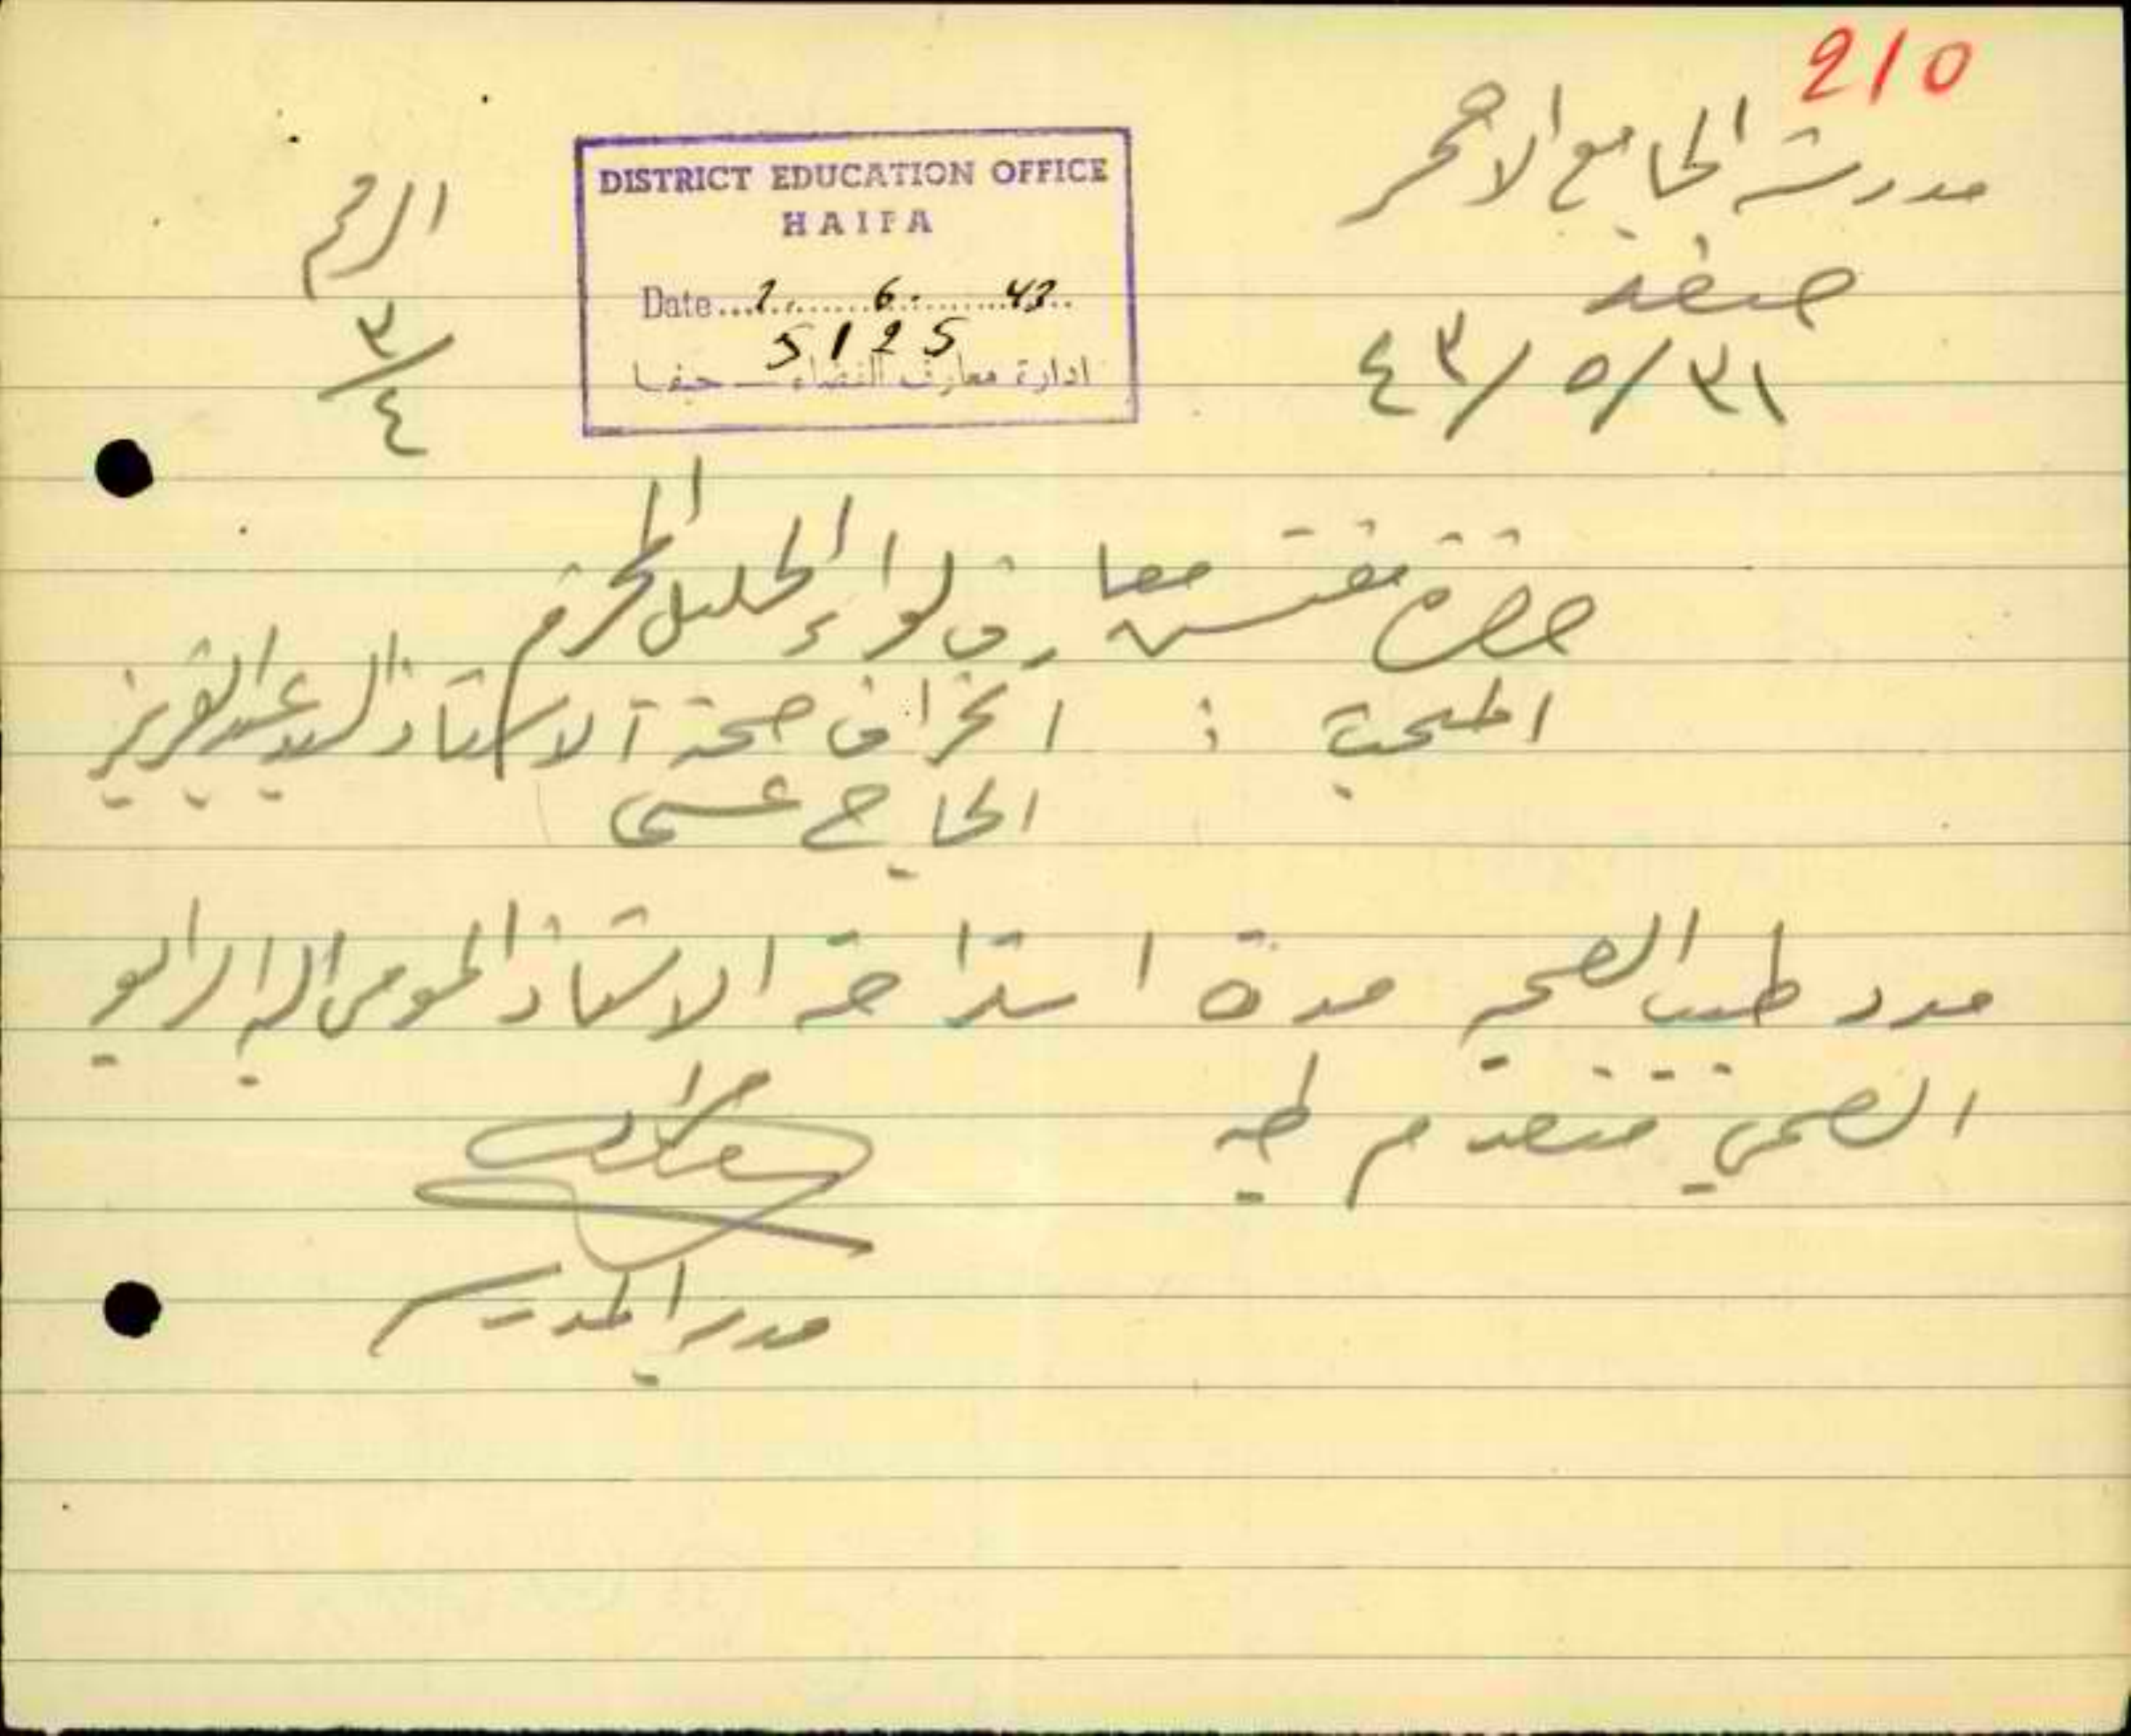 210
مدرسة الجامع الاحمر
صفد
٣١/ ٥/ ٤٣
DISTRICT EDUCATION OFFICE
HAIFA
Date 2. 6. 43
5125
ادارة معارف القضاء - حيفا
الرقم
٣/٤
حضرة مفتش معارف لواء الجليل المحترم
انحراف صحة الاستاذ السيد عبد العزيز
الحاج عيسى
مدد طبيب الصحة مدة استراحة الاستاذ المومى اليه
الصحي
مدير المدرسة